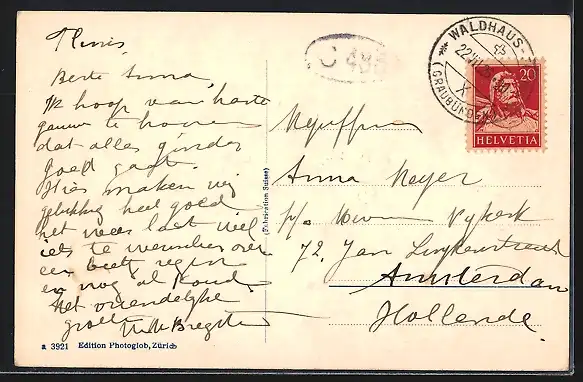 Beste Anna,
Ik hoop van harte
gauw te hooren
dat alles ginder
goed gaat.
Hier maken wij
gelukkig heel goed
het weer laat veel
iets te wenschen over
een beetje regen
en nog al koud
Met vriendelijke
groeten
Mejuffrouw
Anna Meyer
p/a
72, Jan
Amsterdam
Hollande.
(Fabrication Suisse)
a 3921 Edition Photoglob, Zürich
WALDHAUS-
(GRAUBÜNDEN)
20
HELVETIA